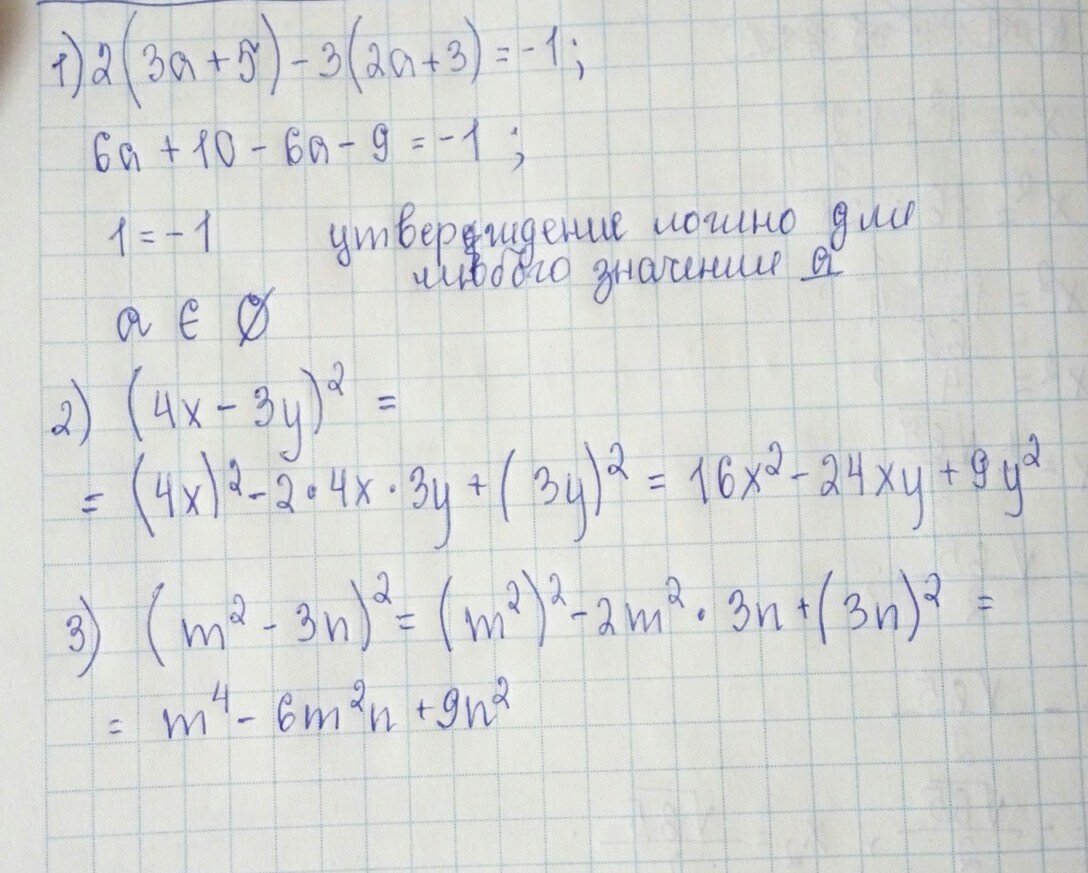 1) 2(3a+5) - 3(2a+3) = -1;
6a + 10 - 6a - 9 = -1;
1 = -1 утверждение ложно для
любого значения a
a ∈ ∅
2) (4x - 3y)² =
= (4x)² - 2·4x·3y + (3y)² = 16x² - 24xy + 9y²
3) (m² - 3n)² = (m²)² - 2m²·3n + (3n)² =
= m⁴ - 6m²n + 9n²